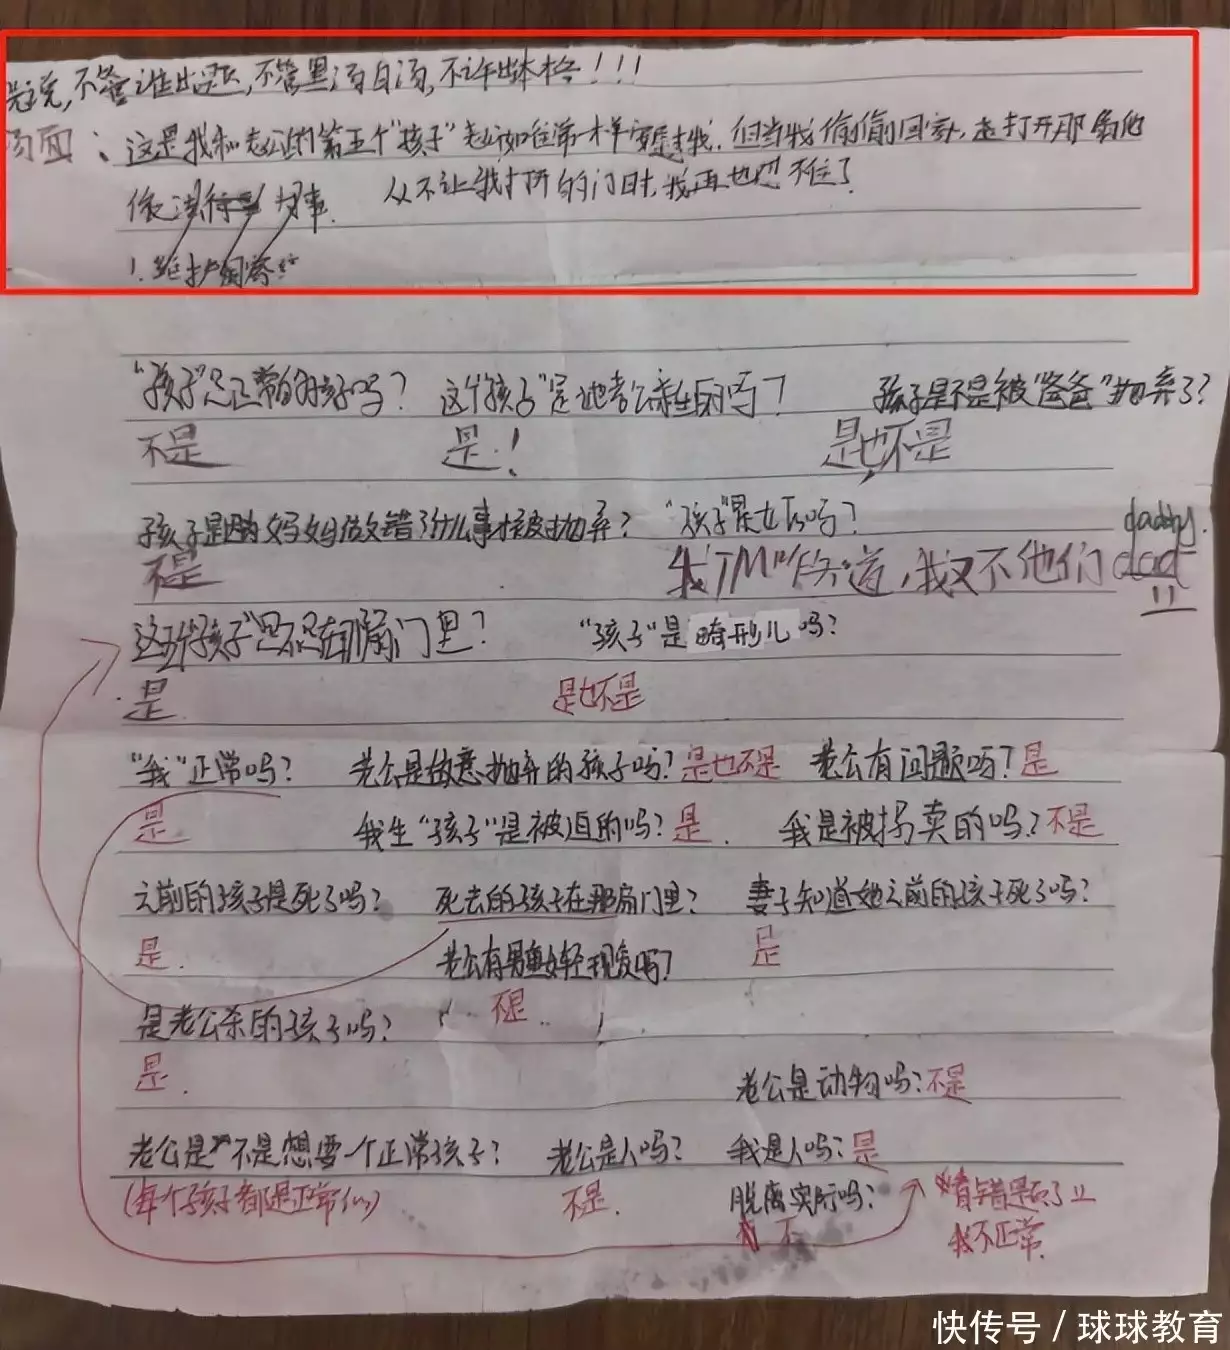 先说,不管谁出题,不管黑汤白汤,不许出本格!!!
汤面:这是我和老公的第五个"孩子"老公如往常一样安慰我.但当我偷偷回家,去打开那扇他
从不让我打开的门时,我再也忍不住了
故事.
1.
"孩子"是正常的孩子吗? 这个"孩子"是她老公亲生的吗? 孩子是不是被"爸爸"抛弃了?
不是 是.! 是也不是
孩子是因为妈妈做错了什么事才被抛弃? "孩子"是女的吗?
不是 我TM咋知道,我又不他们dad daddy.
这个"孩子"是不是在那扇门里? "孩子"是畸形儿吗?
是. 是也不是
"我"正常吗? 老公是故意抛弃的孩子吗?是也不是 老公有问题吗?是
是 我生"孩子"是被迫的吗?是. 我是被拐卖的吗?不是
之前的孩子是死了吗? 死去的孩子在那扇门里? 妻子知道她之前的孩子死了吗?
是. 老公有男重女轻现象吗? 是
是老公杀的孩子吗? 不是.
是. 老公是动物吗?不是
老公是不是想要一个正常孩子? 老公是人吗? 我是人吗?是
(每个孩子都是正常的) 不是. 脱离实际吗?
不 我不正常.
快传号/球球教育